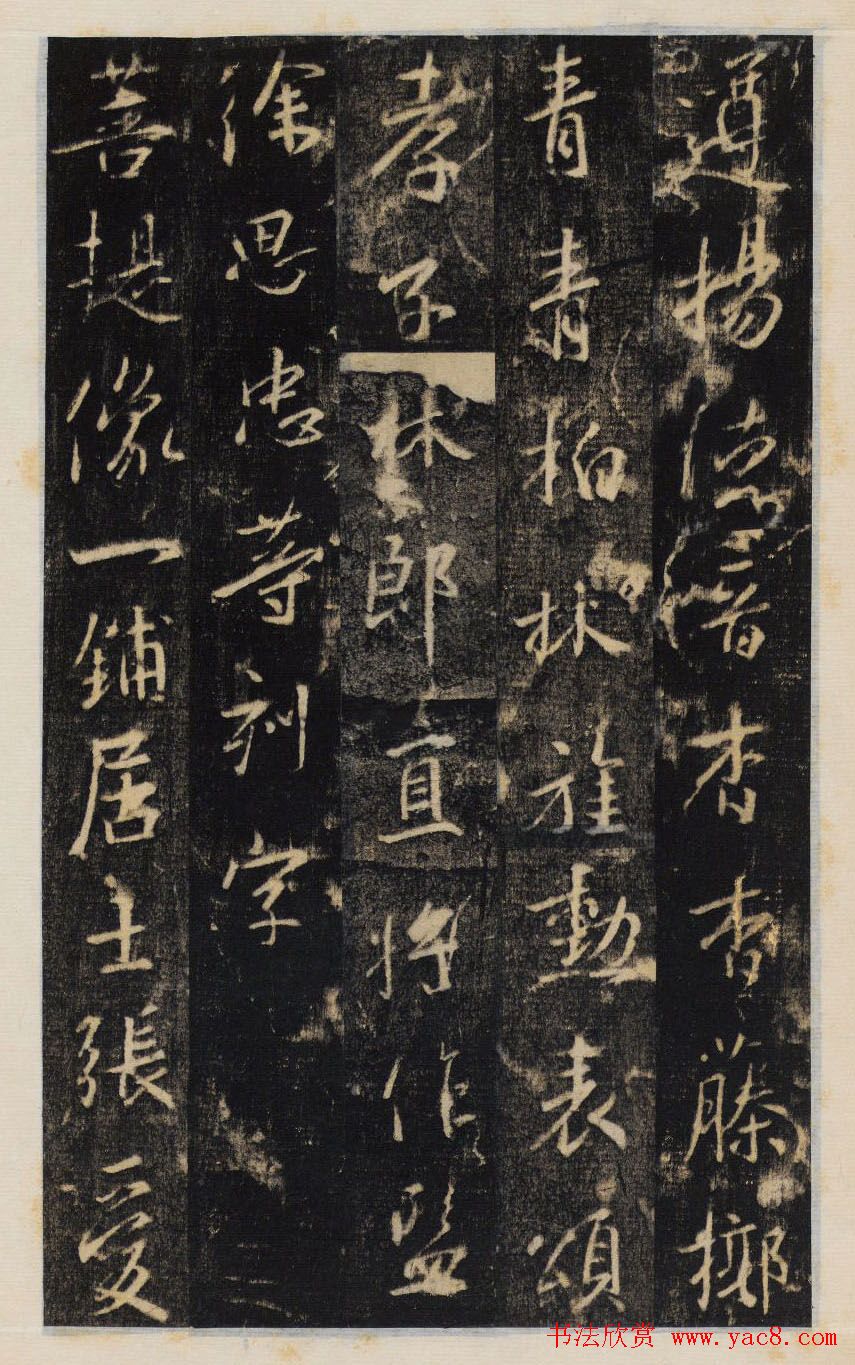 遵楊德音杳杳藤擲
青青柏林旌勳表頌
孝子林郎直將作監
徐思忠等刻字
菩提像一鋪居士張愛
书法欣赏 www.yac8.com